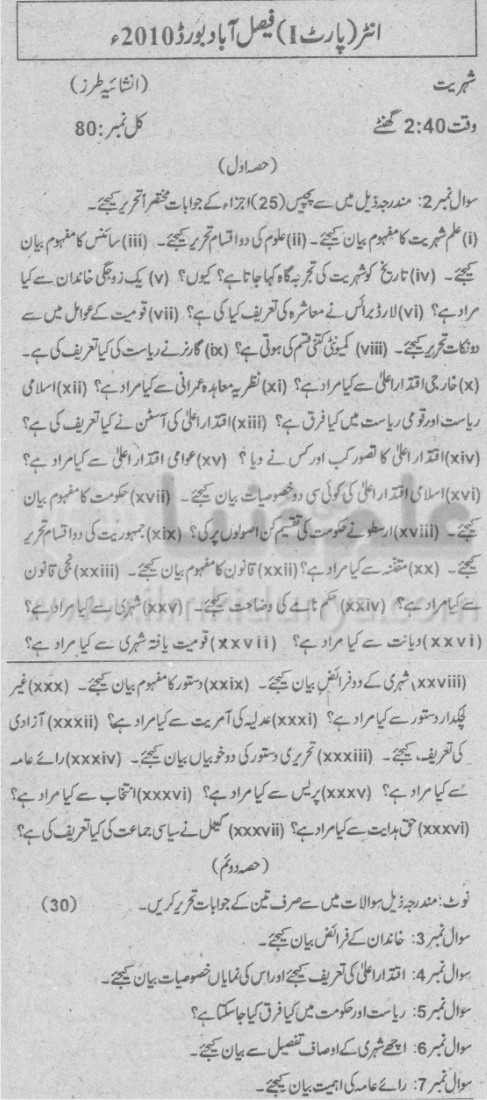 انٹر (پارٹ I) فیصل آباد بورڈ 2010ء
شہریت (انشائیہ طرز)
وقت 2:40 گھنٹے کل نمبر: 80
(حصہ اول)
سوال نمبر 2: مندرجہ ذیل میں سے پچیس (25) اجزاء کے جوابات مختصراً تحریر کیجئے۔
(i) علم شہریت کا مفہوم بیان کیجئے۔ (ii) علوم کی دو اقسام تحریر کیجئے۔ (iii) سائنس کا مفہوم بیان
کیجئے۔ (iv) تاریخ کو شہریت کی تجربہ گاہ کہا جاتا ہے؟ کیوں؟ (v) یک زوجگی خاندان سے کیا
مراد ہے؟ (vi) لارڈ برائس نے معاشرہ کی تعریف کیا کی ہے؟ (vii) قومیت کے عوامل میں سے
دو نکات تحریر کیجئے۔ (viii) کمیونٹی کتنی قسم کی ہوتی ہے؟ (ix) گارنر نے ریاست کی کیا تعریف کی ہے۔
(x) خارجی اقتدار اعلیٰ سے کیا مراد ہے؟ (xi) نظریہ معاہدہ عمرانی سے کیا مراد ہے؟ (xii) اسلامی
ریاست اور قومی ریاست میں کیا فرق ہے؟ (xiii) اقتدار اعلیٰ کی آسٹن نے کیا تعریف کی ہے؟
(xiv) اقتدار اعلیٰ کا تصور کب اور کس نے دیا؟ (xv) عوامی اقتدار اعلیٰ سے کیا مراد ہے؟
(xvi) اسلامی اقتدار اعلیٰ کی کوئی سی دو خصوصیات بیان کیجئے۔ (xvii) حکومت کا مفہوم بیان
کیجئے۔ (xviii) ارسطو نے حکومت کی تقسیم کن اصولوں پر کی؟ (xix) جمہوریت کی دو اقسام تحریر
کیجئے۔ (xx) مقننہ سے کیا مراد ہے؟ (xxii) قانون کا مفہوم بیان کیجئے۔ (xxiii) نجی قانون
سے کیا مراد ہے؟ (xxiv) حکم نامے کی وضاحت کیجئے۔ (xxv) شہری سے کیا مراد ہے؟
(xxvi) دیانت سے کیا مراد ہے؟ (xxvii) قومیت یافتہ شہری سے کیا مراد ہے؟
(xxviii) شہری کے دو فرائض بیان کیجئے۔ (xxix) دستور کا مفہوم بیان کیجئے۔ (xxx) غیر
لچکدار دستور سے کیا مراد ہے؟ (xxxi) عدلیہ کی آمریت سے کیا مراد ہے؟ (xxxii) آزادی
کی تعریف کیجئے۔ (xxxiii) تحریری دستور کی دو خوبیاں بیان کیجئے۔ (xxxiv) رائے عامہ
سے کیا مراد ہے؟ (xxxv) پریس سے کیا مراد ہے؟ (xxxvi) انتخاب سے کیا مراد ہے؟
(xxxvi) حق ہدایت سے کیا مراد ہے؟ (xxxvii) گیٹل نے سیاسی جماعت کی کیا تعریف کی ہے؟
(حصہ دوئم)
نوٹ: مندرجہ ذیل سوالات میں سے صرف تین کے جوابات تحریر کریں۔ (30)
سوال نمبر 3: خاندان کے فرائض بیان کیجئے۔
سوال نمبر 4: اقتدار اعلیٰ کی تعریف کیجئے اور اس کی نمایاں خصوصیات بیان کیجئے۔
سوال نمبر 5: ریاست اور حکومت میں کیا فرق کیا جا سکتا ہے؟
سوال نمبر 6: اچھے شہری کے اوصاف تفصیل سے بیان کیجئے۔
سوال نمبر 7: رائے عامہ کی اہمیت بیان کیجئے۔